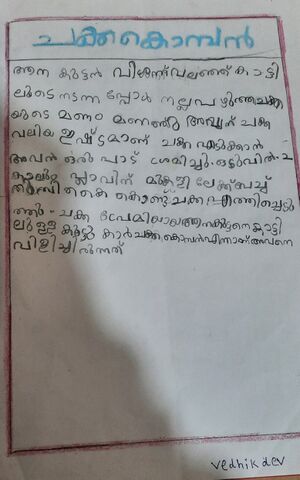 ചക്കകൊമ്പൻ
ആന കുട്ടൻ വിശന്ന് വലഞ്ഞ് കാട്ടി
ലൂടെ നടന്ന പ്പോൾ നല്ല പഴുത്ത ചക്ക
യുടെ മണം മണത്തു അവന് ചക്ക
വലിയ ഇഷ്ട്ടമാണ് ചക്ക എടുക്കാൻ
അവൻ ഒരു പാട് ശ്രമിച്ചു. ഒടുവിൽ 2
കാലും പ്ലാവിന് മുകളി ലേക്ക് വെച്ച്
തുമ്പി കൈ കൊണ്ട് ചക്ക എത്തിച്ചെടു
ത്തു. ചക്ക പ്രേമിയായ ആനകുട്ടനെ കാട്ടി
ലുള്ള കൂട്ടു കാർ ചക്കകൊമ്പൻ എന്നാണ് അവനെ
വിളിച്ചി രുന്നത്
vedhik dev